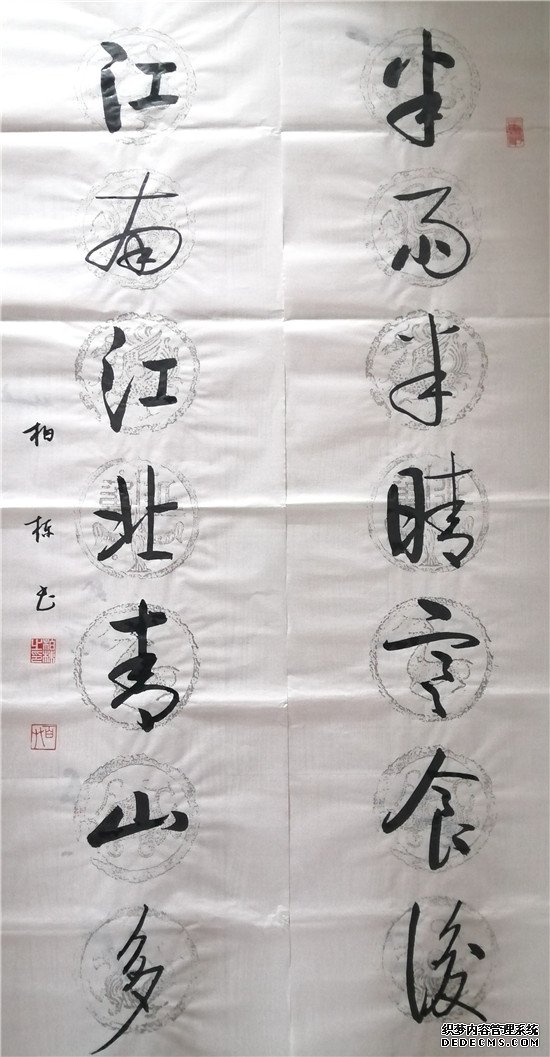 半雨半晴寒食後
江南江北青山多
柏栋书
织梦内容管理系统
DEDECMS.COM